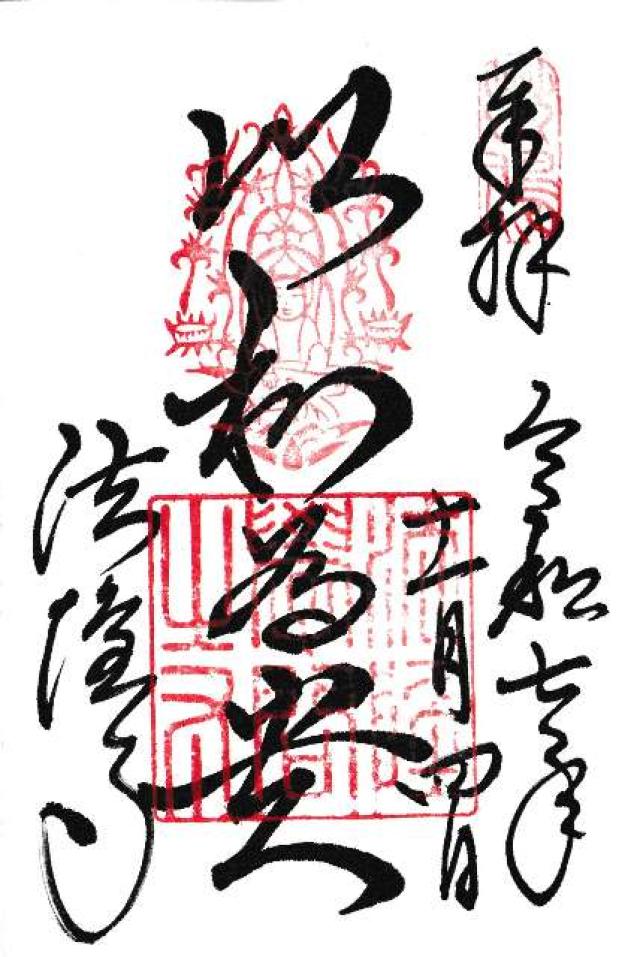 奉拝
令和七年
十一月四日
以和為貴
法隆寺